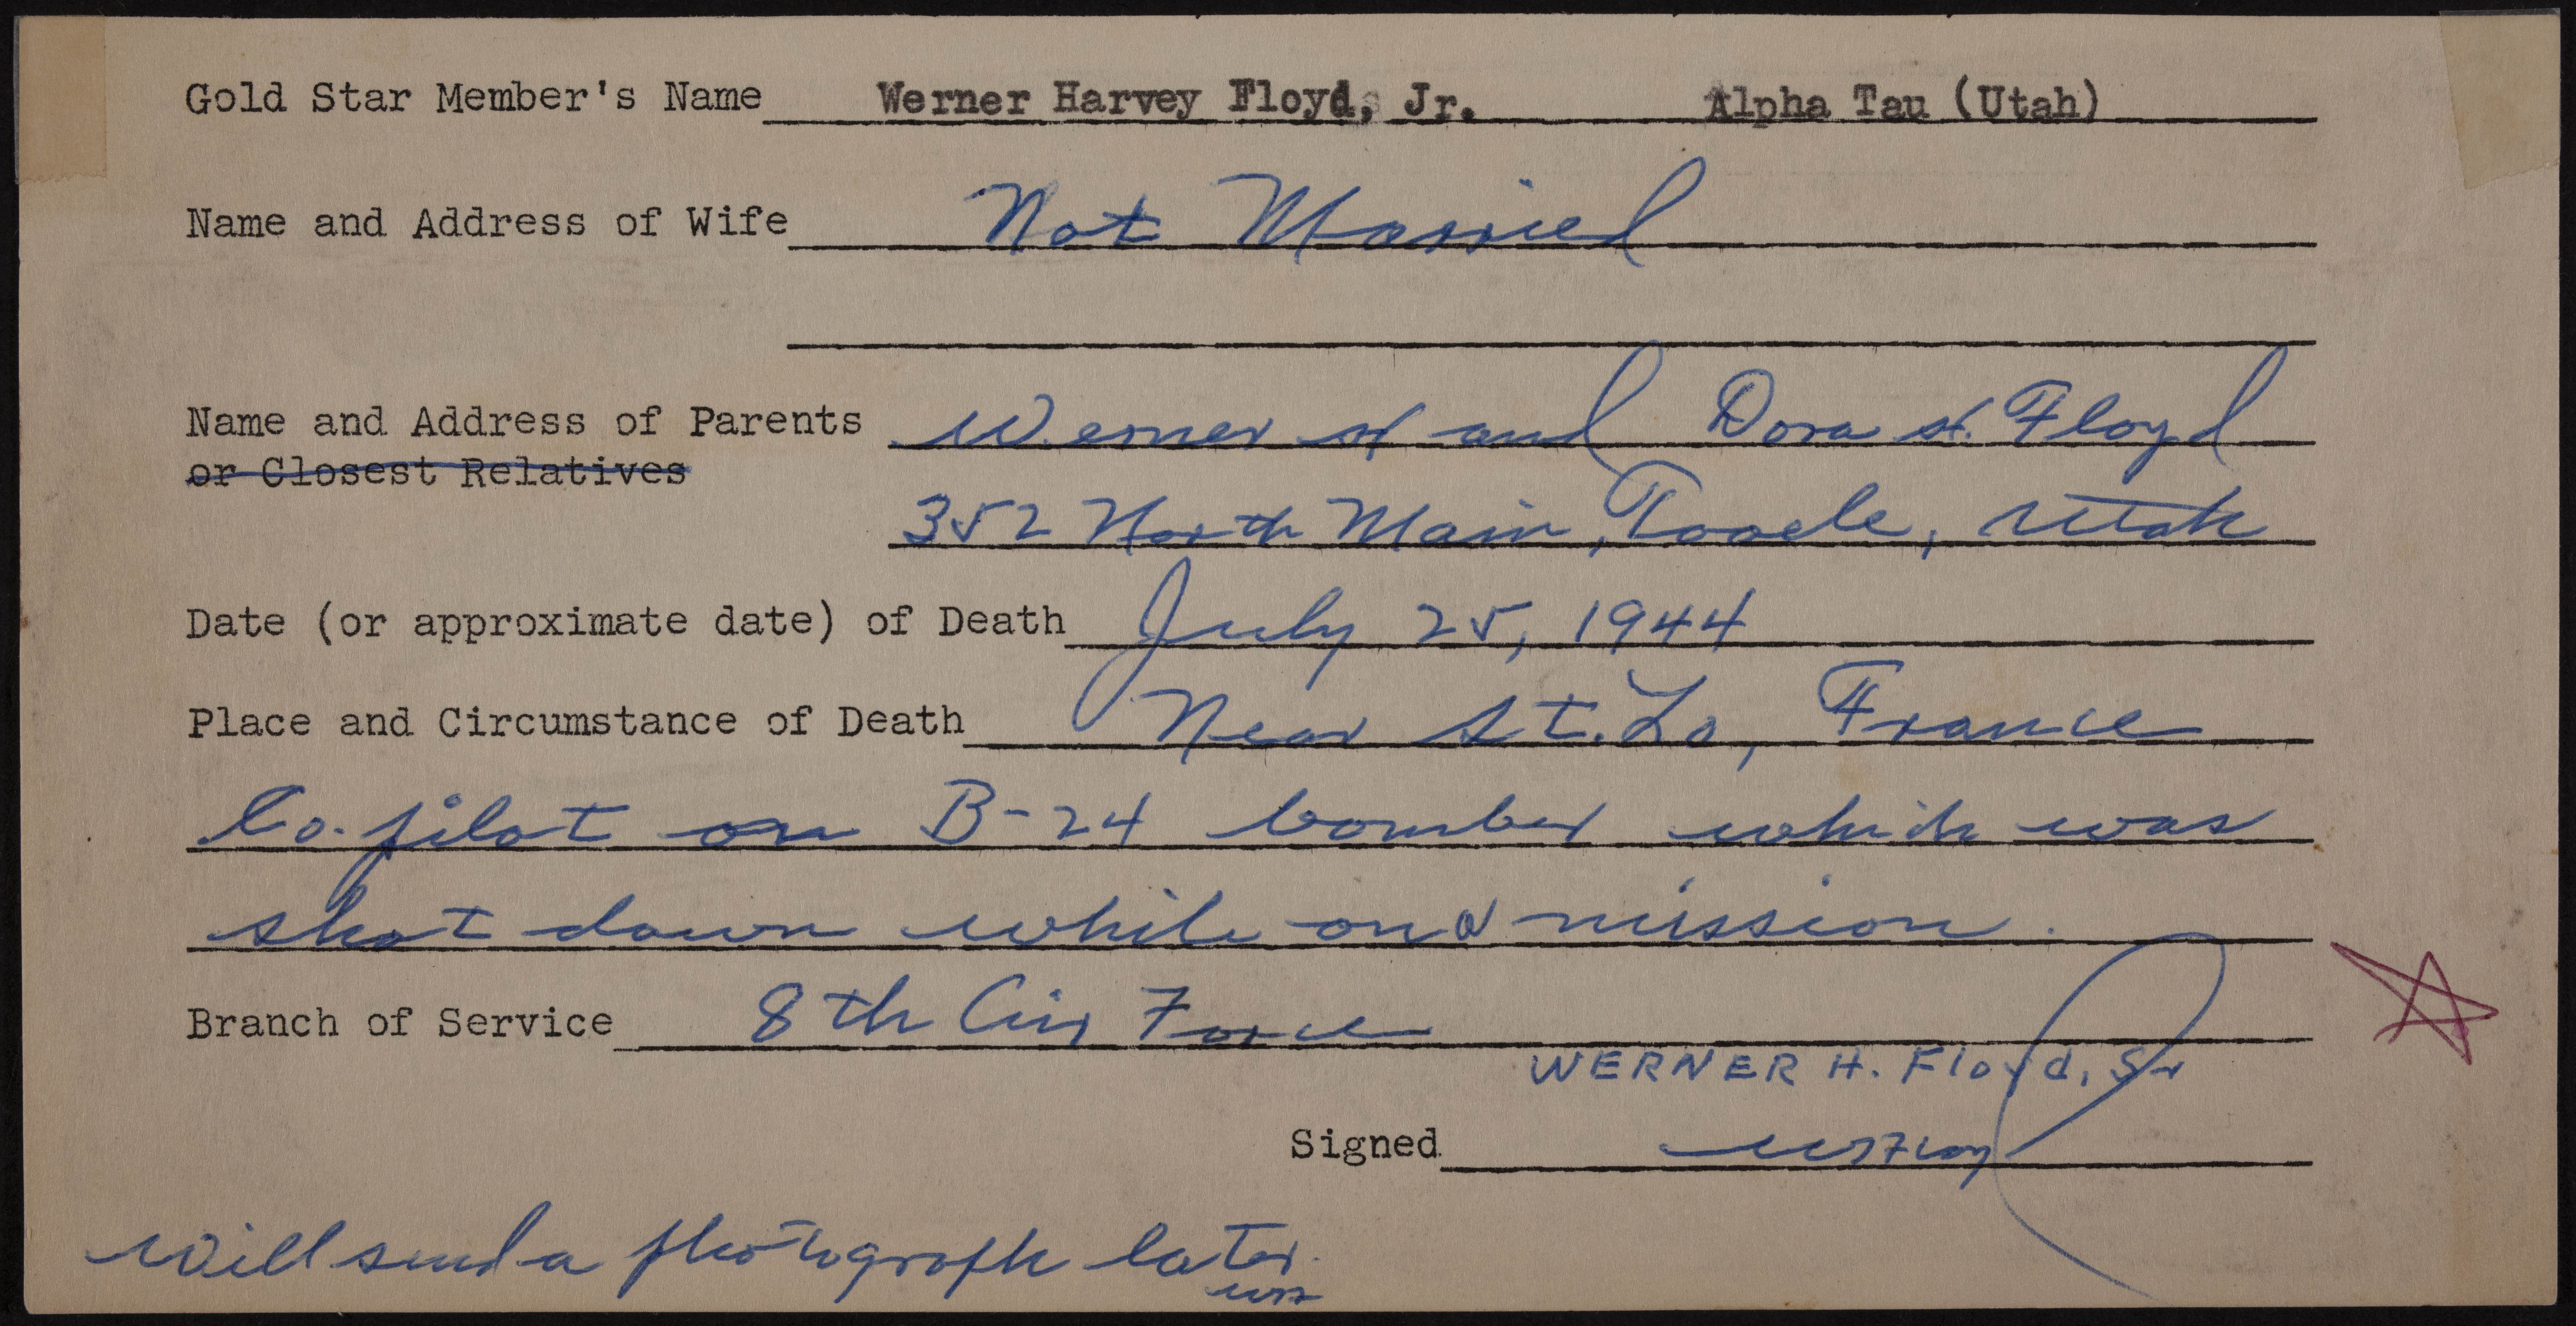 Gold Star Member's Name Werner Harvey Floyd, Jr. Alpha Tau (Utah)
Name and Address of Wife Not Married
Name and Address of Parents Werner H and Dora H. Floyd
or Closest Relatives
352 North Main, Tooele, Utah
Date (or approximate date) of Death July 25, 1944
Place and Circumstance of Death Near St. Lo, France
Co-pilot on B-24 bomber which was
shot down while on a mission.
Branch of Service 8th Air Force
WERNER H. Floyd, Sr
Signed WHFloyd
Will send a photograph later.
WHF